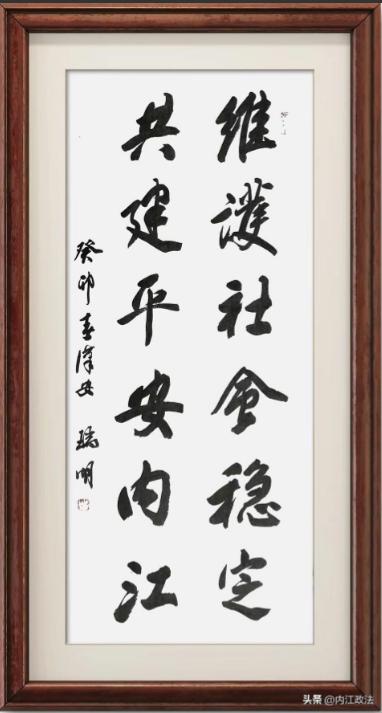 維護社會穩定
共建平安内江
癸卯春漢安 瑞明
头条 @内江政法